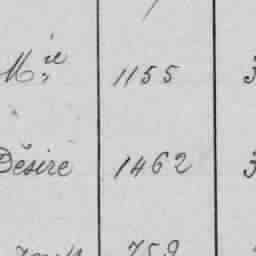 M.ie 1155 3
Désiré 1462 3
759